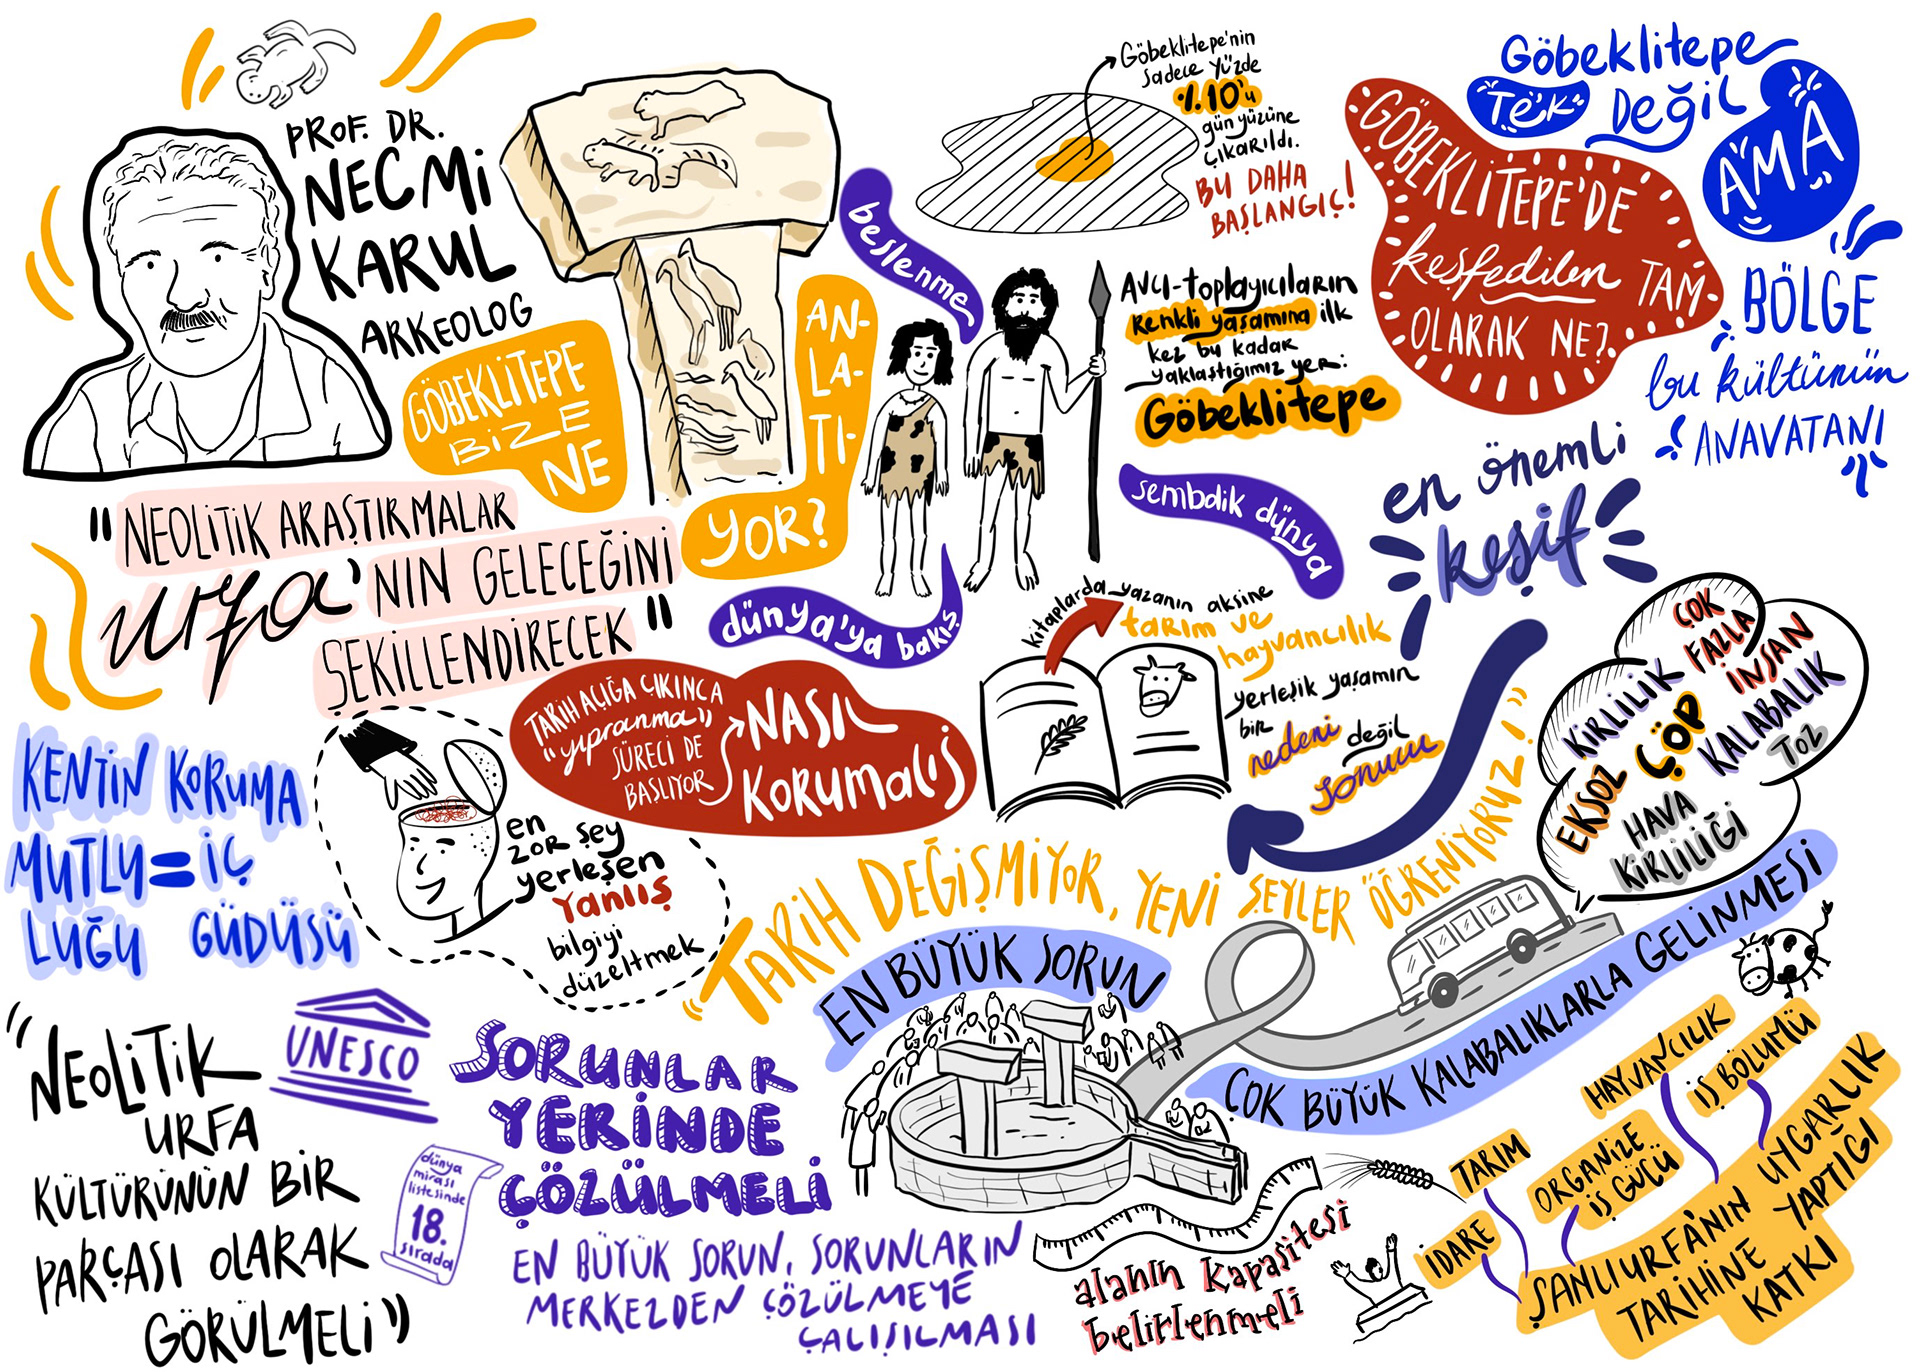 PROF. DR.
NECMİ
KARUL
ARKEOLOG
GÖBEKLİTEPE
BİZE
NE
AN-
LA-
TI-
YOR?
beslenme
Göbeklitepe'nin
sadece yüzde
%10'u
gün yüzüne
çıkarıldı.
BU DAHA
BAŞLANGIÇ!
AVCI-toplayıcıların
Renkli yaşamına ilk
kez bu kadar
yaklaştığımız yer:
Göbeklitepe
GÖBEKLİTEPE'DE
keşfedilen TAM
OLARAK NE?
Göbeklitepe
TEK Değil
AMA
BÖLGE
bu kültürün
ANAVATANI
"NEOLİTİK ARAŞTIRMALAR
urfa'NIN GELECEĞİNİ
ŞEKİLLENDİRECEK"
dünya'ya bakış
sembolik dünya
en önemli
keşif
kitaplarda yazanın aksine
tarım ve
hayvancılık
yerleşik yaşamın
bir
nedeni değil
sonucu
TARİH AÇIĞA ÇIKINCA
"yıpranma"
SÜRECİ DE
BAŞLIYOR
NASIL
KORUMALI?
KENTİN KORUMA
MUTLU = İÇ
LUĞU GÜDÜSÜ
en
zor şey
yerleşen
Yanlış
bilgiyi
düzeltmek
"TARİH DEĞİŞMİYOR, YENİ ŞEYLER ÖĞRENİYORUZ!"
ÇOK
FAZLA
İNSAN
KİRLİLİK
ÇÖP
KALABALIK
TOZ
EKSOZ
HAVA
KİRLİLİĞİ
EN BÜYÜK SORUN
ÇOK BÜYÜK KALABALIKLARLA GELİNMESİ
"NEOLİTİK
URFA
KÜLTÜRÜNÜN BİR
PARÇASI OLARAK
GÖRÜLMELİ"
UNESCO
dünya
mirası
listesinde
18.
sırada
SORUNLAR
YERİNDE
ÇÖZÜLMELİ
EN BÜYÜK SORUN, SORUNLARIN
MERKEZDEN ÇÖZÜLMEYE
ÇALIŞILMASI
alanın kapasitesi
belirlenmeli
HAYVANCILIK
İŞ BÖLÜMÜ
TARIM
ORGANİZE
İŞ GÜCÜ
İDARE
ŞANLIURFA'NIN UYGARLIK
TARİHİNE YAPTIĞI
KATKI